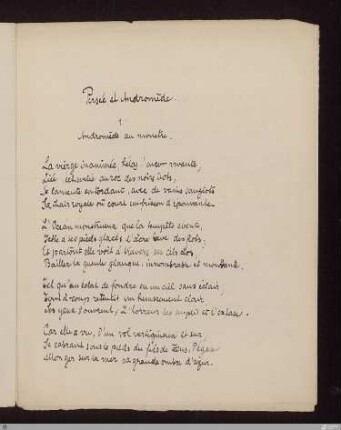 Persée et Andromède.
1
Andromède au monstre.
La vierge inanimée, hélas ! encor vivante,
Liée, échevelée au roc des noirs îlots,
Se lamente en tordant, avec de vains sanglots
Sa chair royale où court un frisson d'épouvante.
L'Océan monstrueux que la tempête évente,
Jette à ses pieds glacés l'âcre bave des flots,
Et partout elle voit à travers ses cils clos
Bâiller la gueule glauque, innombrable et mouvante.
Tel qu'un éclat de foudre en un ciel sans éclair,
Tout à coup retentit un hennissement clair.
Ses yeux s'ouvrent. L'horreur les emplit et l'extase.
Car elle a vu, d'un vol vertigineux et sûr
Se cabrant sous le poids du fils de Zeus, Pégase
Allonger sur la mer sa grande ombre d'azur.